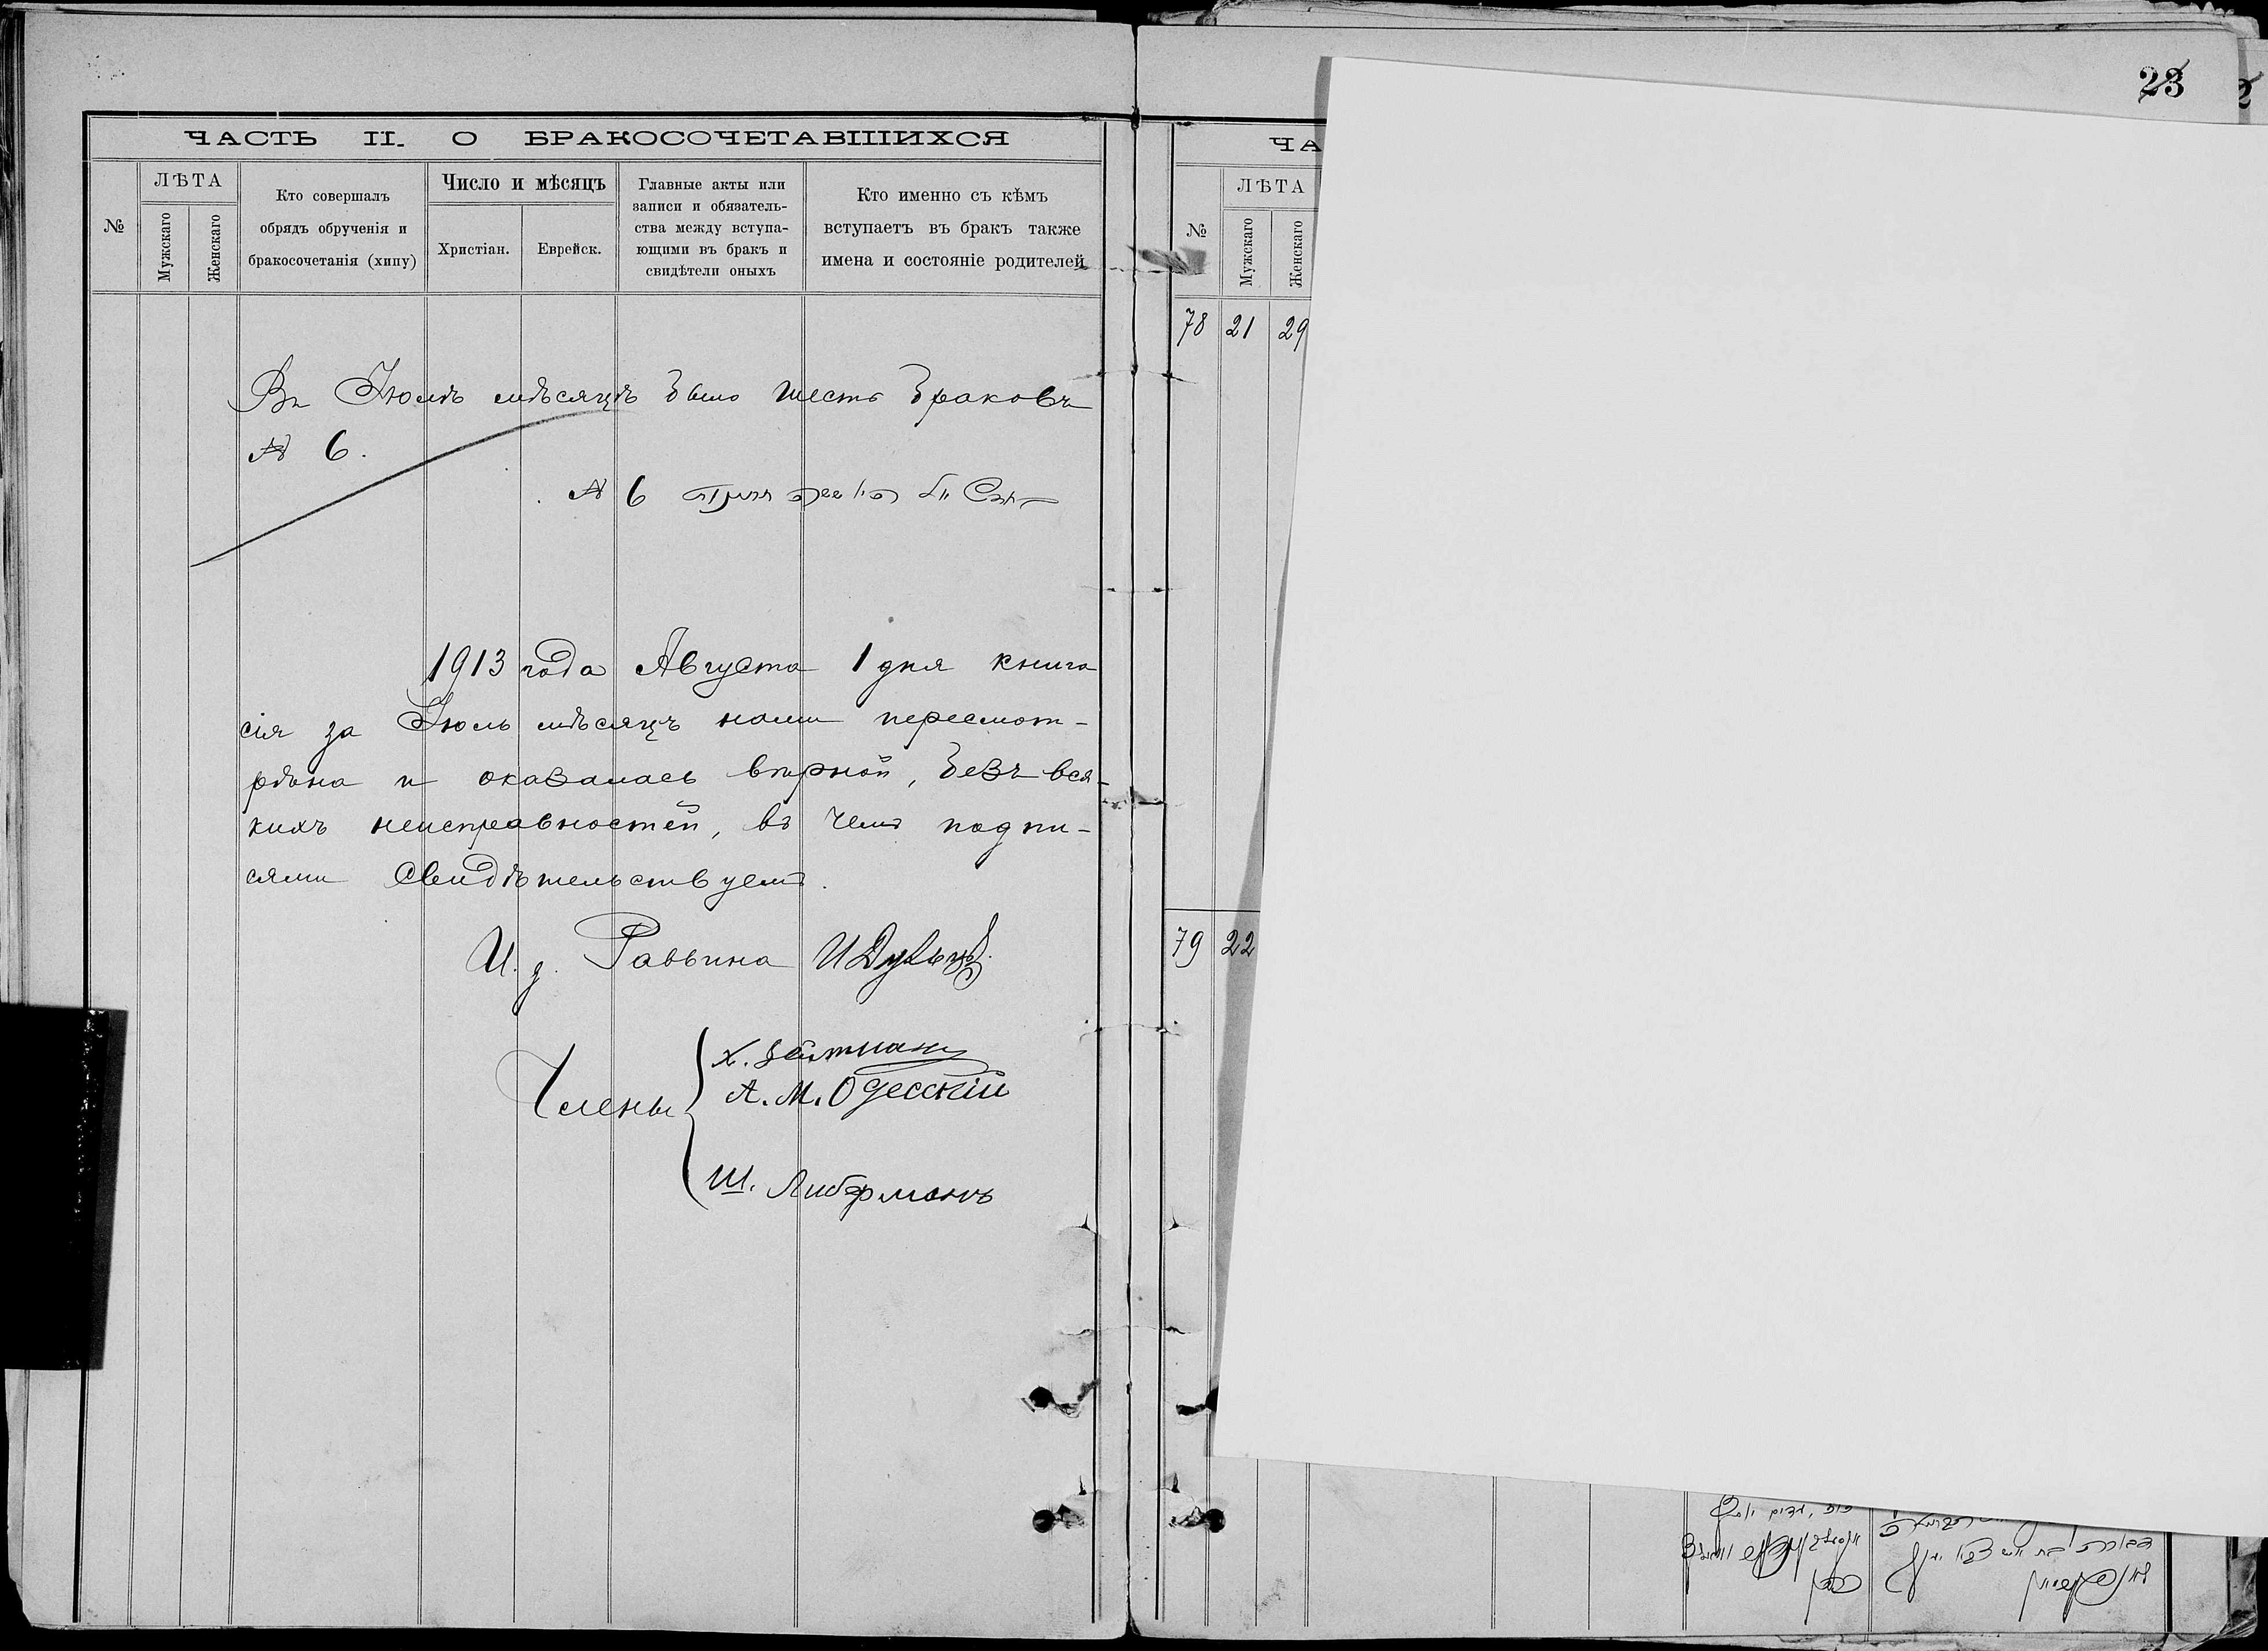 ЧАСТЬ II. О БРАКОСОЧЕТАВШИХСЯ
№
ЛѢТА
Мужскаго
Женскаго
Кто совершалъ
обрядъ обрученія и
бракосочетанія (хипу)
Число и мѣсяцъ
Христіан.
Еврейск.
Главные акты или
записи и обязатель-
ства между вступа-
ющими въ бракъ и
свидѣтели оныхъ
Кто именно съ кѣмъ
вступаетъ въ бракъ также
имена и состояніе родителей
Въ Іюлѣ мѣсяцѣ было шесть браковъ
№ 6.
№ 6
1913 года Августа 1 дня книга
сія за Іюль мѣсяцъ нами пересмот-
рѣна и оказалась вѣрной, безъ вся-
кихъ неисправностей, въ чемъ подпи-
сями свидѣтельствуемъ.
И. д. Раввина
Члены
А. М. Одесскій
Ш. Либерманъ
23
2
ЧА
№
ЛѢТА
Мужскаго
Женскаго
78 21 29
79 22